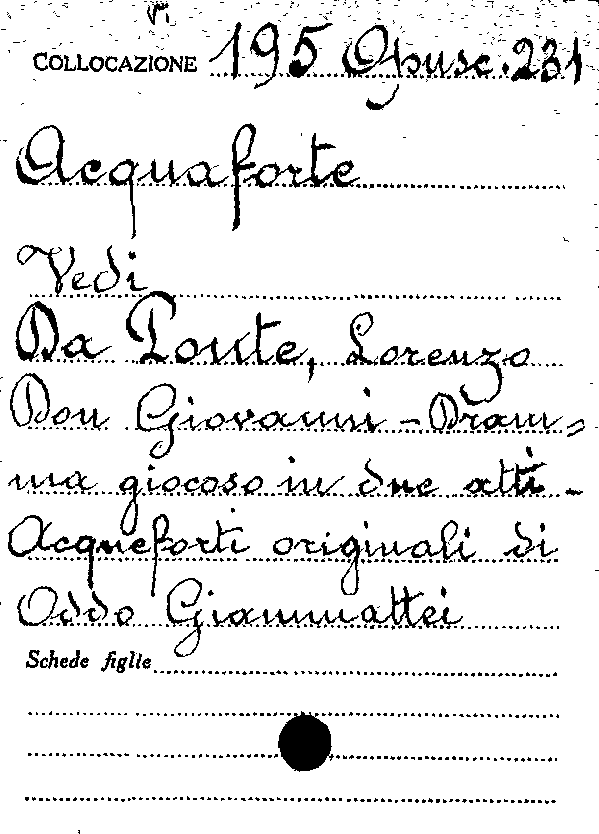 COLLOCAZIONE 195 Opusc. 231
Acquaforte
Vedi
Da Ponte, Lorenzo
Don Giovanni - Dram=
ma giocoso in due atti -
Acqueforti originali di
Oddo Giammattei
Schede figlie